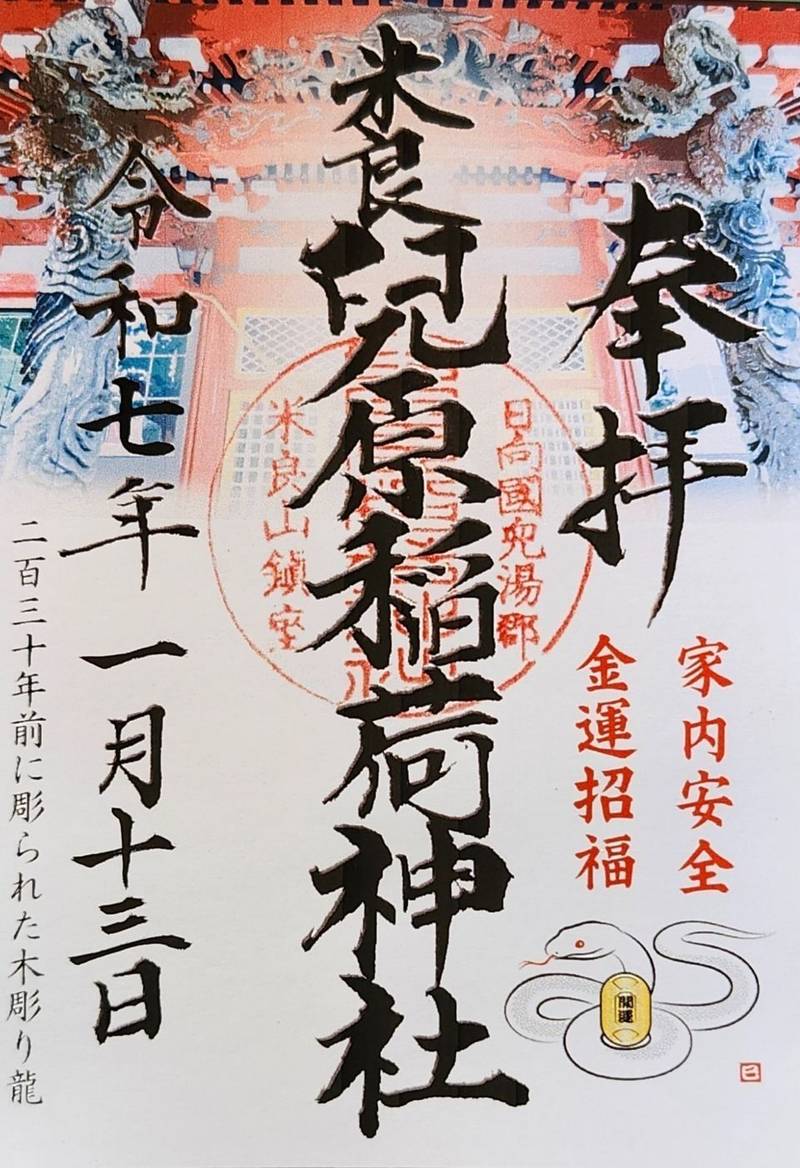 奉拝
家内安全
金運招福
開運
巳
日向國兒湯郡
米良山鎮座
米良
兒原稲荷神社
令和七年一月十三日
二百三十年前に彫られた木彫り龍